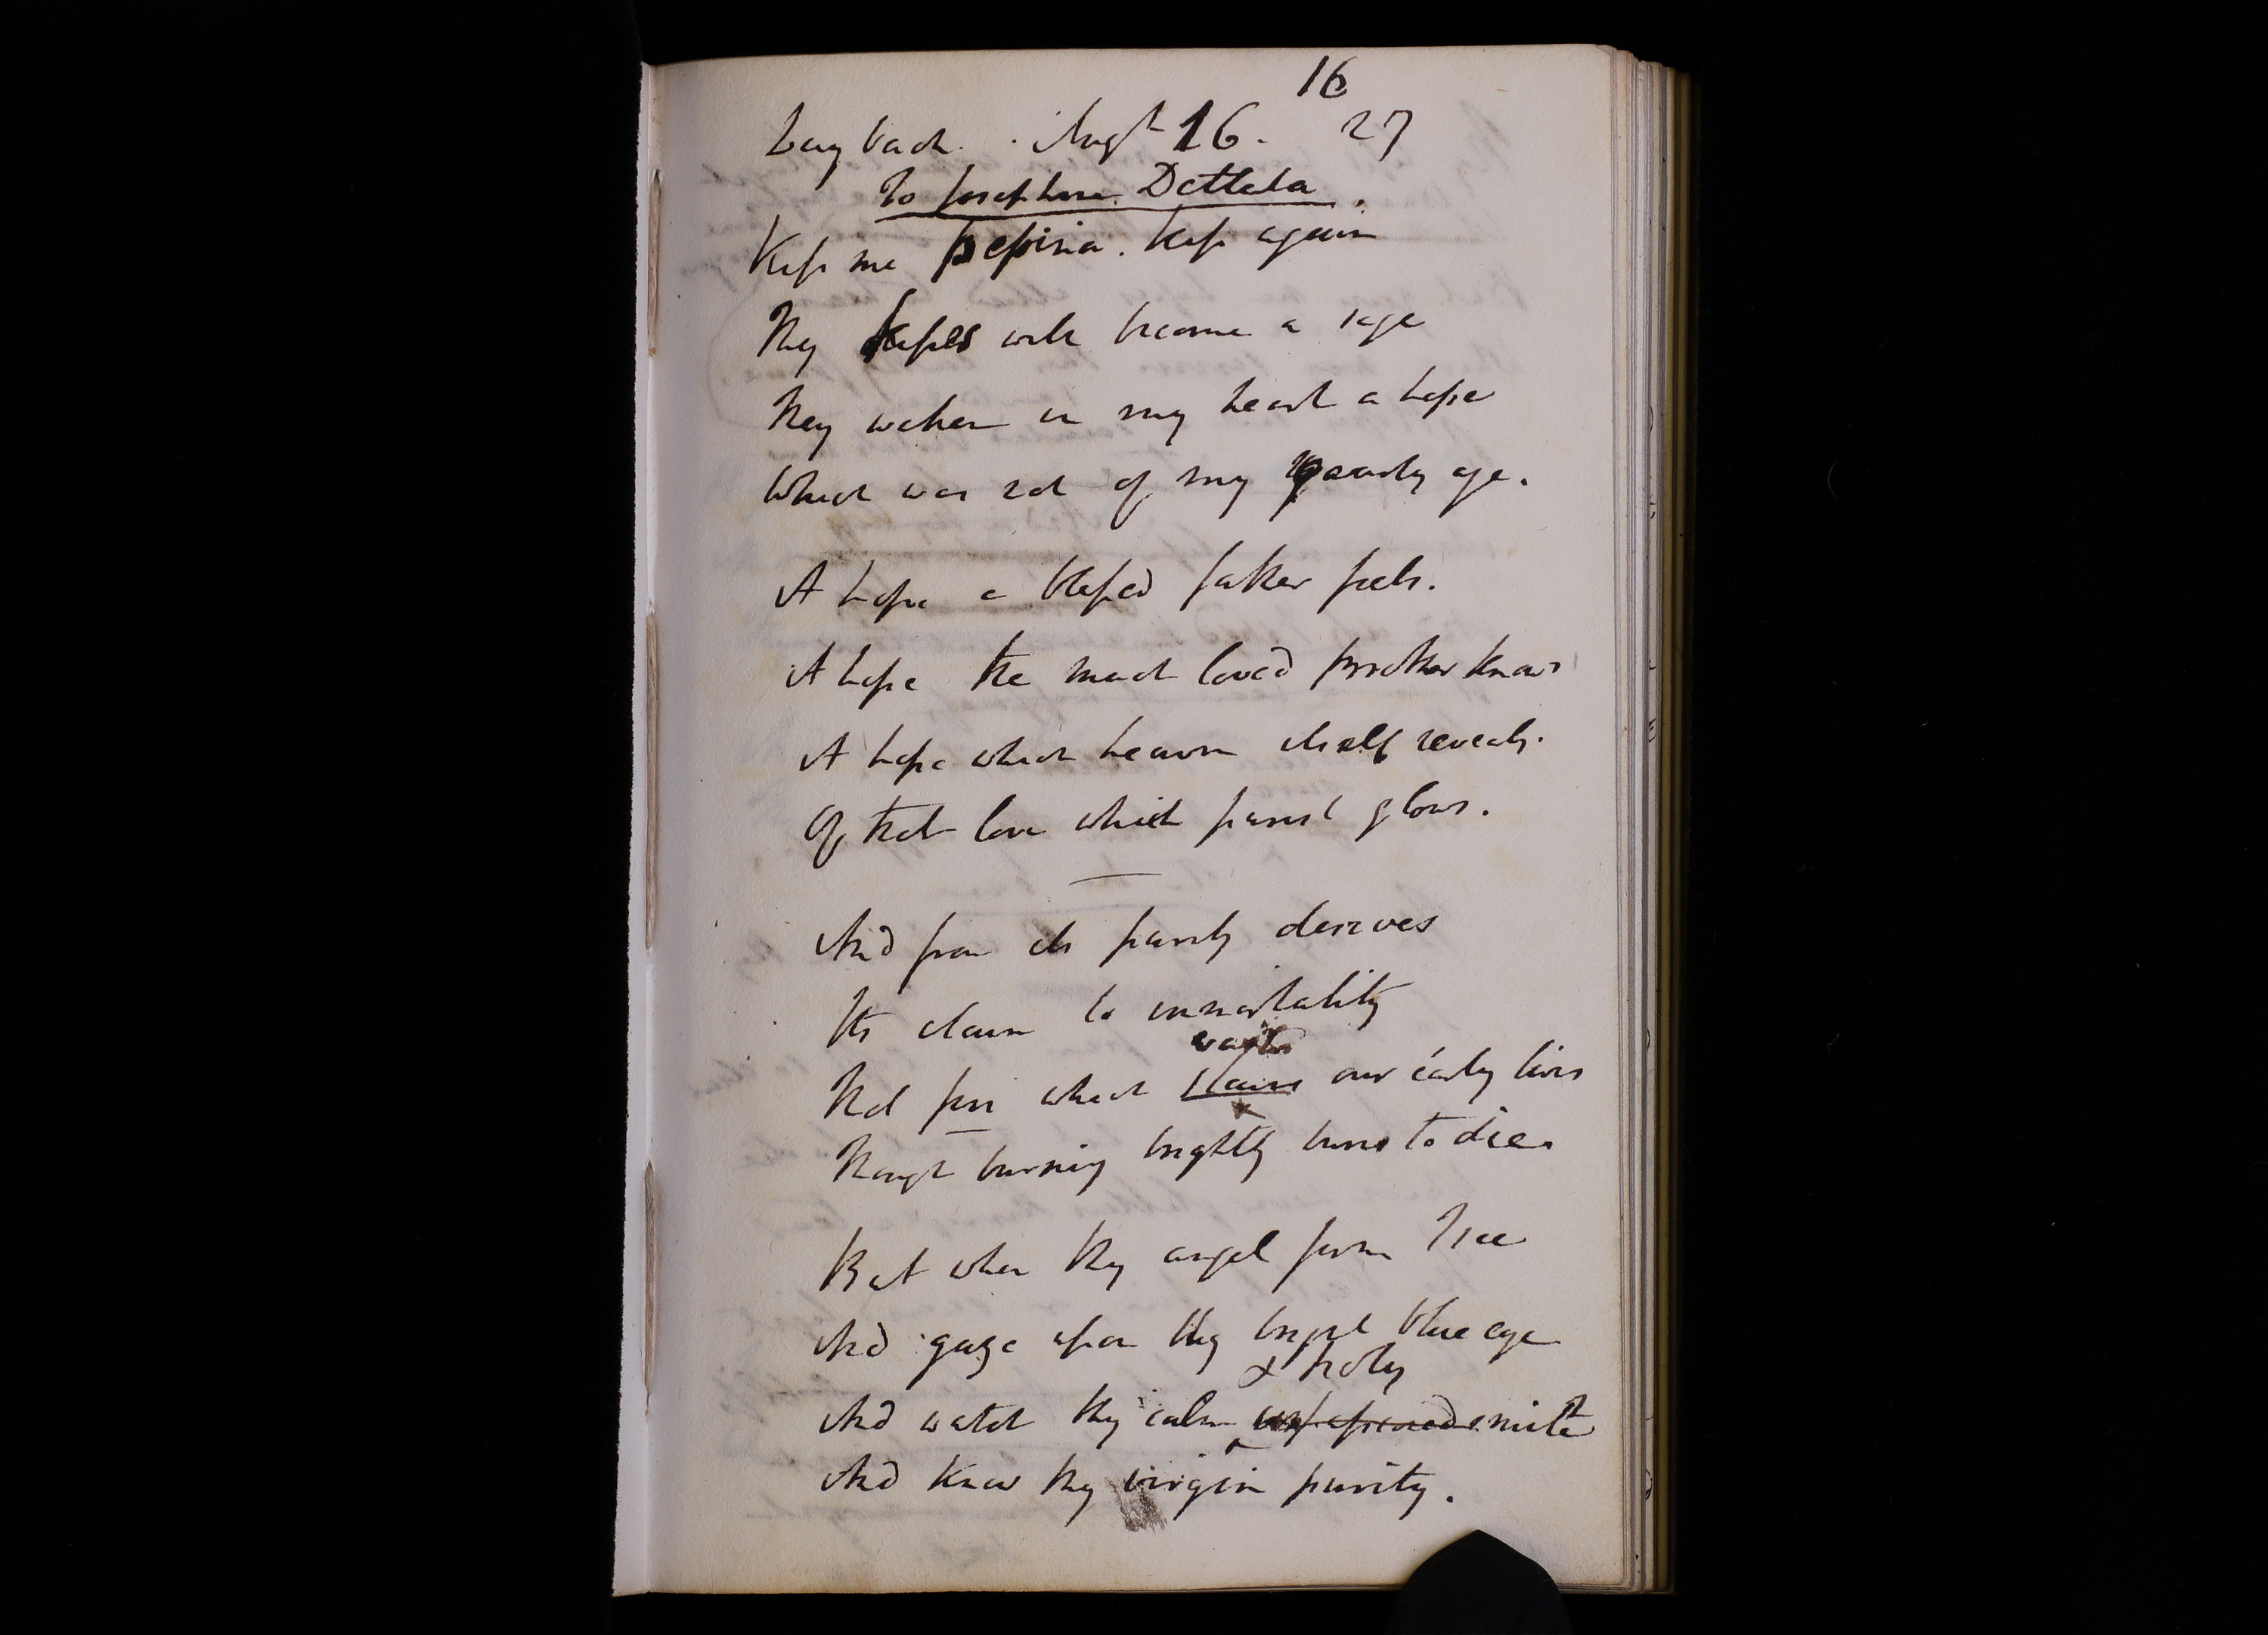 16
Laybach. Augt 16. 27
To Josephine Dettela.
Kiss me Pepina. kiss again
Thy kisses will become a sage
They waken in my heart a hope
Which was not of my youth age.
A hope a blessed father feels.
A hope the much loved brother knows
A hope which heaven itself reveals.
Of that love which purest glows.
And from its purity derives
Its claim to immortality
wastes
Not fire which our early lives
Though burning brightly burns to die.
But when thy angel form I see
And gaze upon thy bright blue eye
& holy
And watch thy calm smile
And know thy virgin purity.